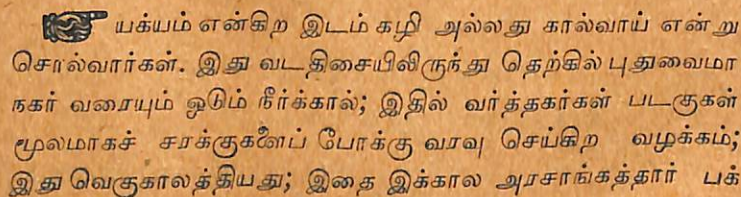 யக்யம் என்கிற இடம் கழி அல்லது கால்வாய் என்று
சொல்வார்கள். இது வடதிசையிலிருந்து தெற்கில் புதுவைமா
நகர் வரையும் ஓடும் நீர்க்கால்; இதில் வர்த்தகர்கள் படகுகள்
மூலமாகச் சரக்குகளைப் போக்கு வரவு செய்கிற வழக்கம்;
இது வெகுகாலத்தியது; இதை இக்கால அரசாங்கத்தார் பக்